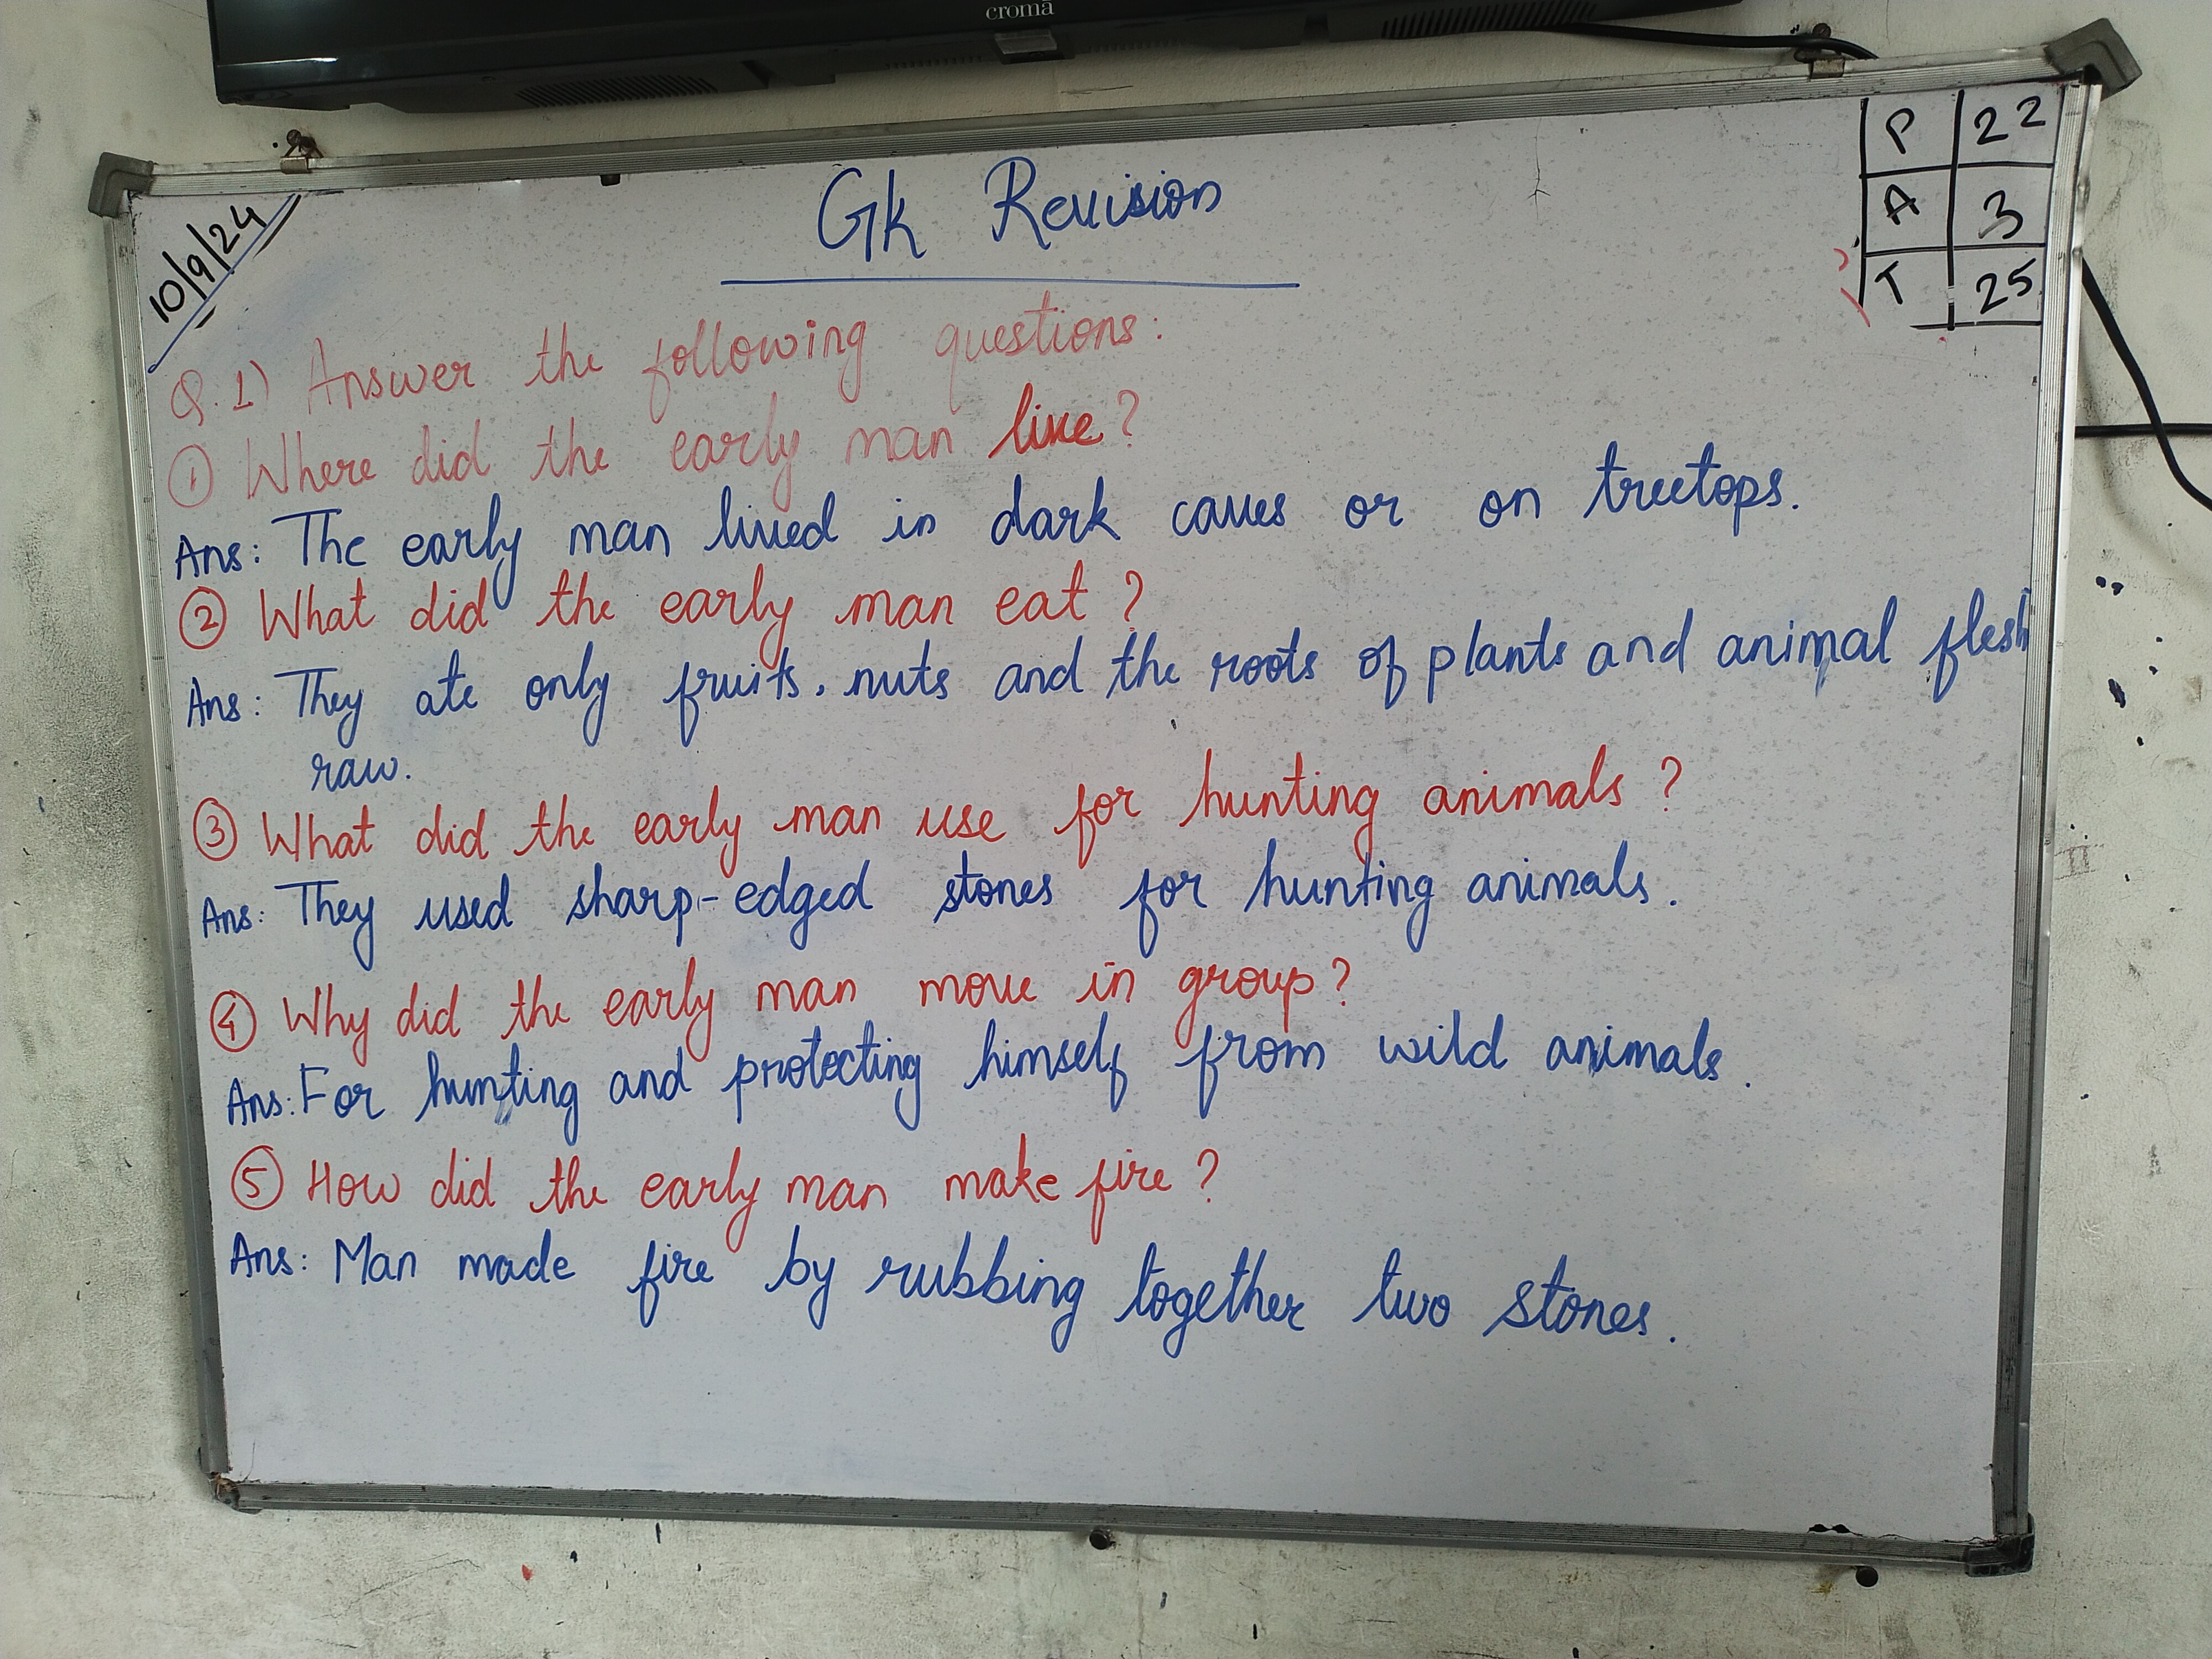 croma
10/9/24
P 22
A 3
T 25
Gk Revision
Q.1) Answer the following questions:
① Where did the early man live?
Ans: The early man lived in dark caves or on treetops.
② What did the early man eat?
Ans: They ate only fruits, nuts and the roots of plants and animal flesh
raw.
③ What did the early man use for hunting animals?
Ans: They used sharp-edged stones for hunting animals.
④ Why did the early man move in group?
Ans: For hunting and protecting himself from wild animals.
⑤ How did the early man make fire?
Ans: Man made fire by rubbing together two stones.